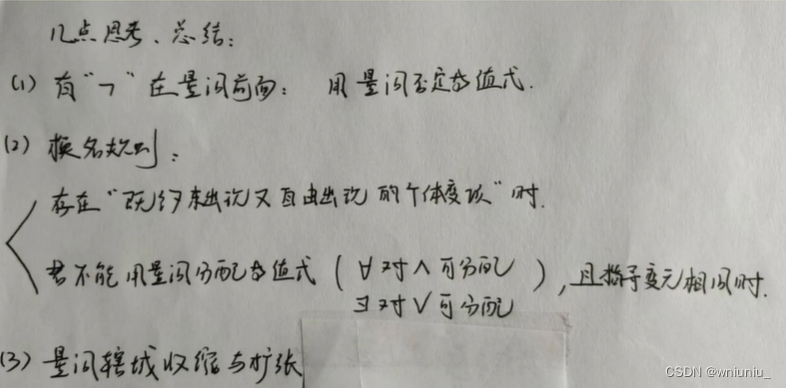 几点思考、总结:
(1) 有“¬”在量词前面: 用量词否定等值式.
(2) 换名规则:
存在“既约束出现又自由出现的个体变项”时.
若不能用量词分配等值式(∀对∧可分配
∃对∨可分配),且指导变元相同时.
(3) 量词辖域收缩与扩张
CSDN @wniuniu_